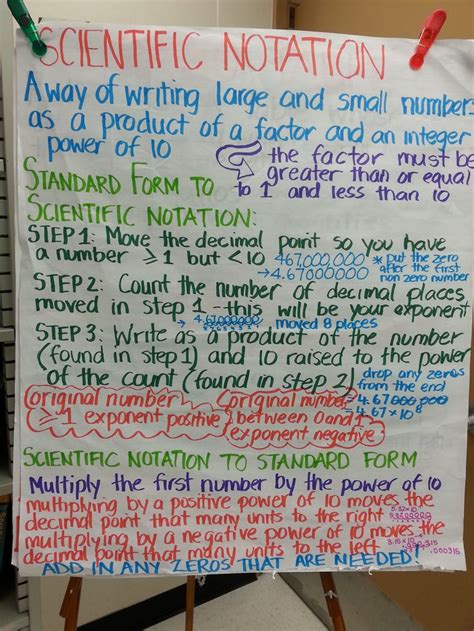 SCIENTIFIC NOTATION
A way of writing large and small number
as a product of a factor and an integer
power of 10
the factor must be
greater than or equal
to 1 and less than 10
STANDARD FORM TO
SCIENTIFIC NOTATION:
STEP 1: Move the decimal point so you have
a number ≥ 1 but < 10
467,000,000
→ 4.67000000
* put the zero
after the first
non zero number
STEP 2: Count the number of decimal places
moved in step 1 - this will be your exponent
4.67000000
moved 8 places
STEP 3: Write as a product of the number
(found in step 1) and 10 raised to the power
of the count (found in step 2)
drop any zeros
from the end
4.67000000
= 4.67 × 10⁸
original number
≥ 1 exponent positive
original number
between 0 and 1
exponent negative
SCIENTIFIC NOTATION TO STANDARD FORM
Multiply the first number by the power of 10
multiplying by a positive power of 10 moves the
decimal point that many units to the right
multiplying by a negative power of 10 moves the
decimal point that many units to the left
.000315
ADD IN ANY ZEROS THAT ARE NEEDED!